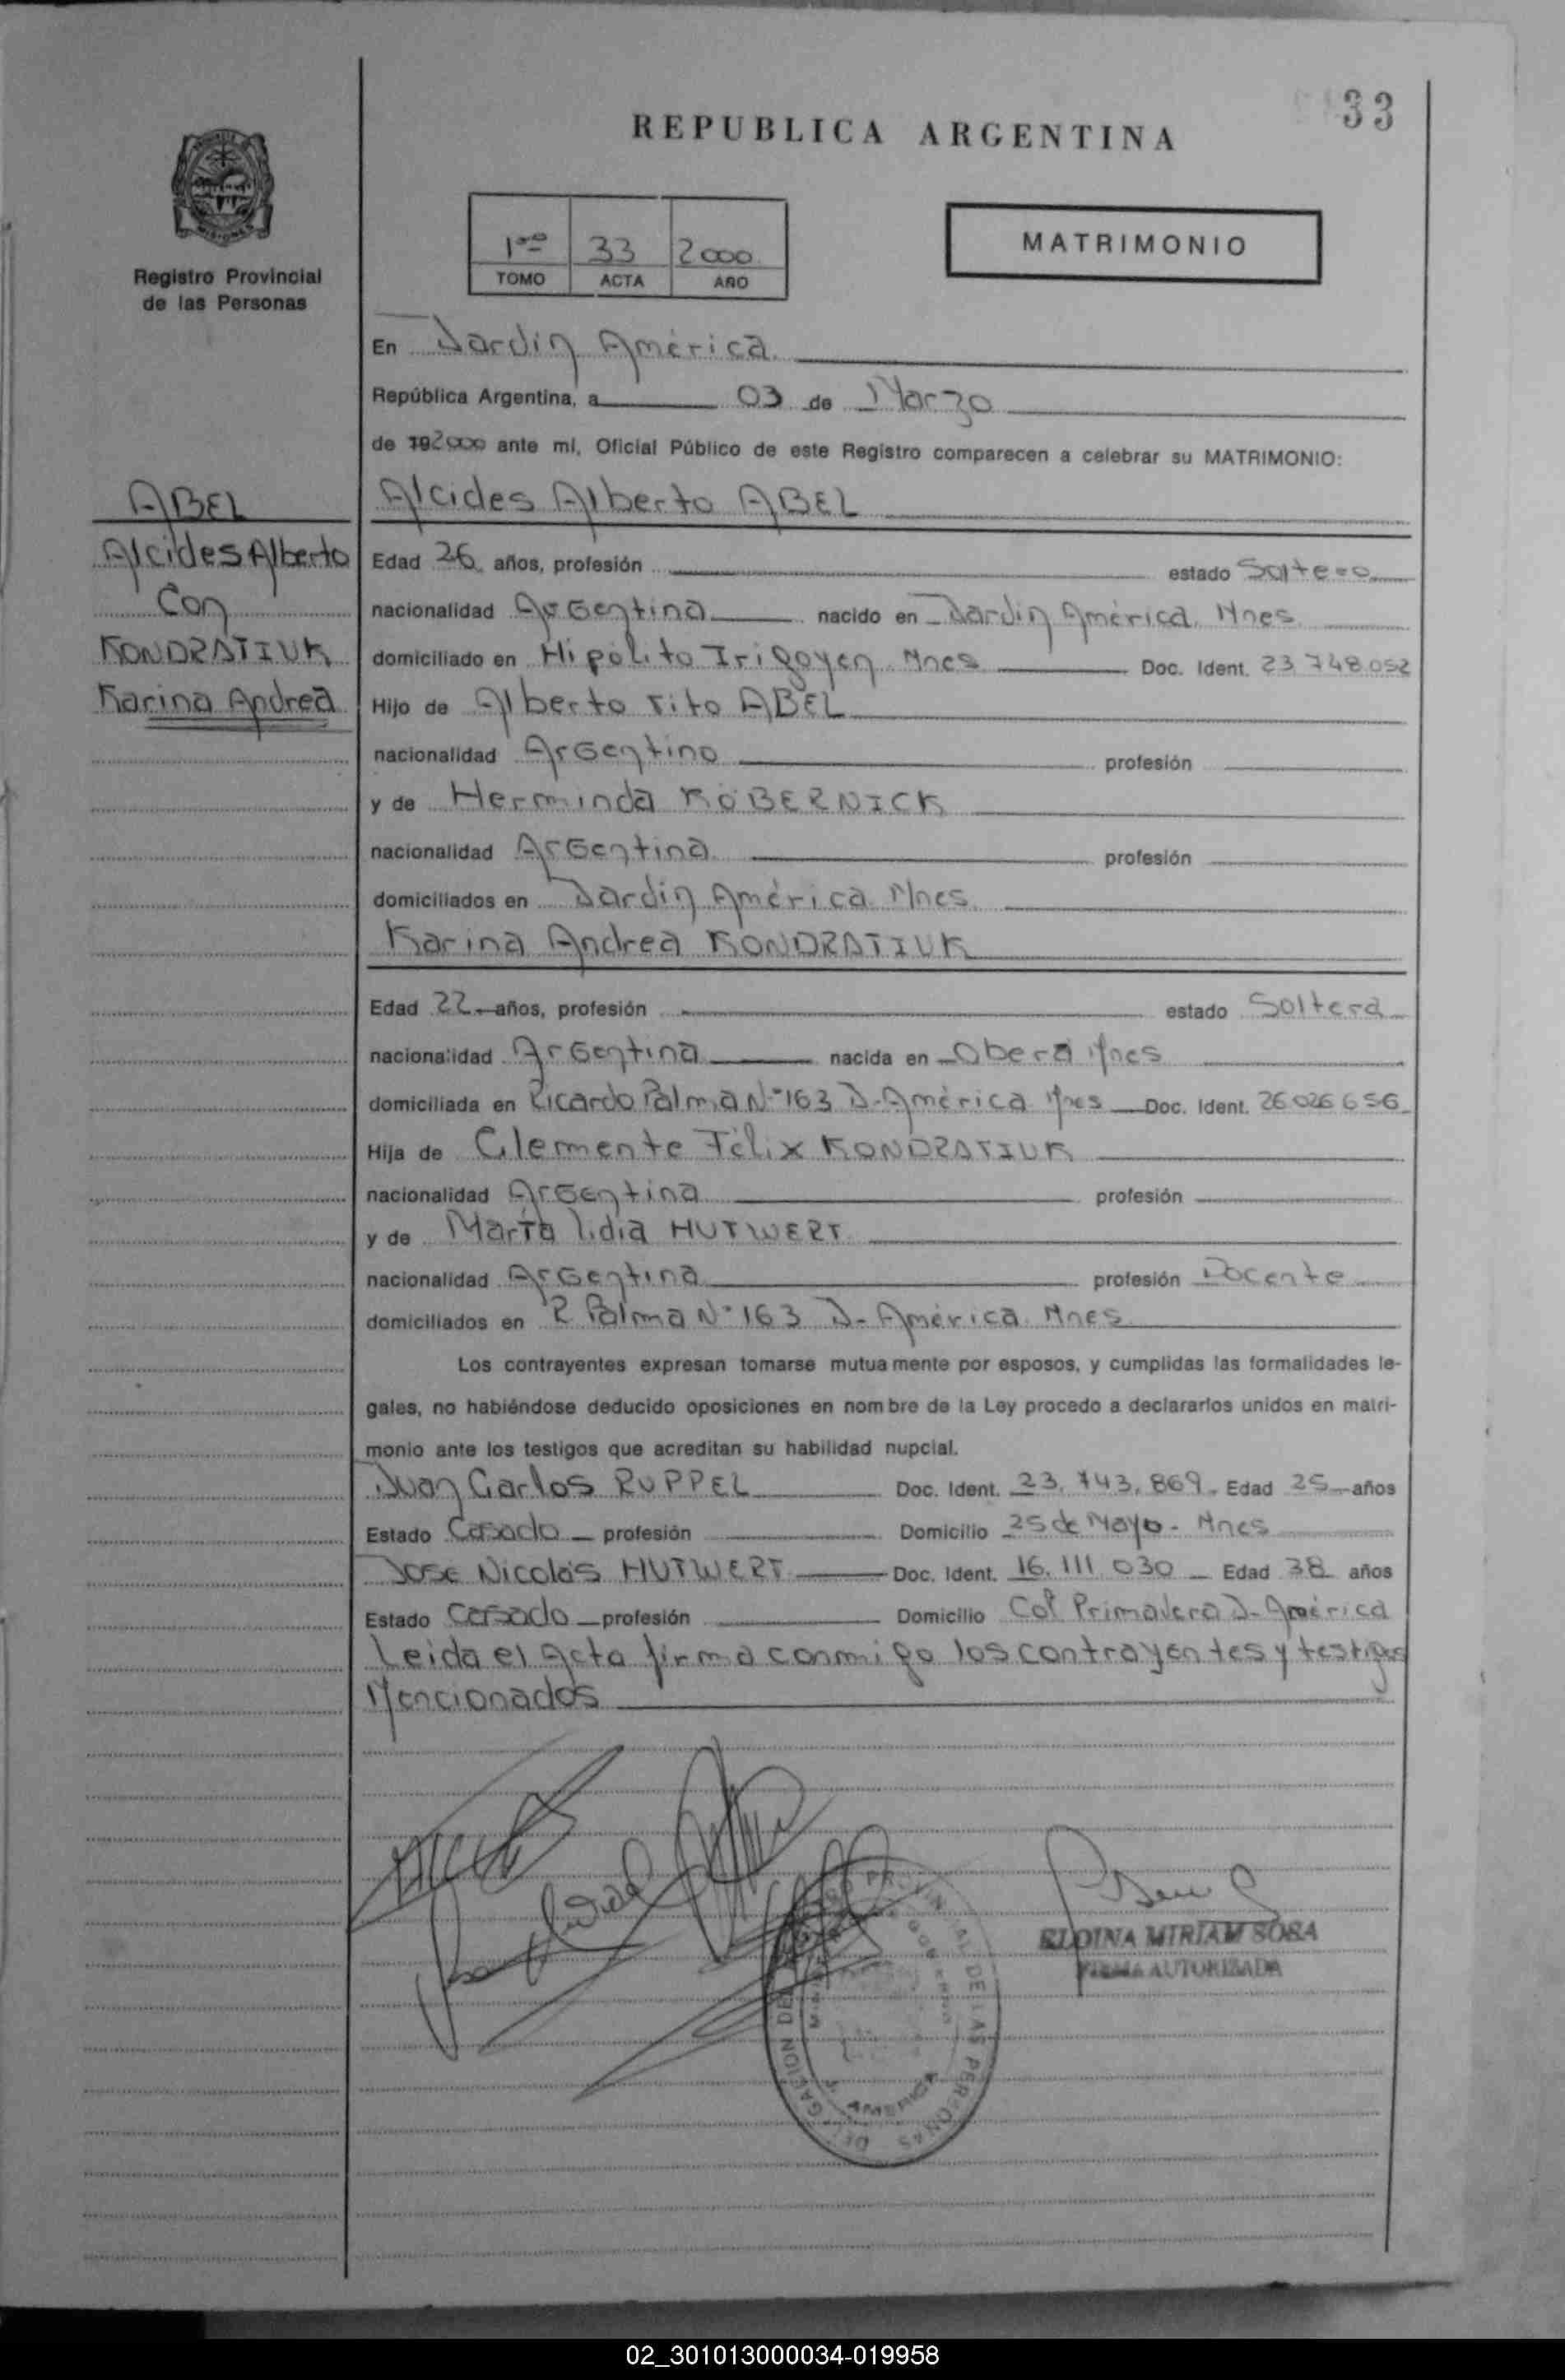 33
REPUBLICA ARGENTINA
MISIONES
Registro Provincial
de las Personas
1ro 33 2000
TOMO ACTA AÑO
MATRIMONIO
En Jardin América
República Argentina, a 03 de Marzo
de 192000 ante mí, Oficial Público de este Registro comparecen a celebrar su MATRIMONIO:
ABEL
Alcides Alberto
Con
KONDRATIUK
Karina Andrea
Alcides Alberto ABEL
Edad 26 años, profesión estado Soltero
nacionalidad Argentina nacido en Jardin América Mnes
domiciliado en Hipólito Irigoyen Mnes Doc. Ident. 23.748.052
Hijo de Alberto Tito ABEL
nacionalidad Argentino profesión
y de Herminda KOBERNICK
nacionalidad Argentina profesión
domiciliados en Jardin América Mnes
Karina Andrea KONDRATIUK
Edad 22 años, profesión estado Soltera
nacionalidad Argentina nacida en Oberá Mnes
domiciliada en Ricardo Palma N° 163 J. América Mnes Doc. Ident. 26026656
Hija de Clemente Félix KONDRATIUK
nacionalidad Argentina profesión
y de Marta lidia HUTWERT
nacionalidad Argentina profesión Docente
domiciliados en R Palma N° 163 J- América Mnes
Los contrayentes expresan tomarse mutuamente por esposos, y cumplidas las formalidades le-
gales, no habiéndose deducido oposiciones en nombre de la Ley procedo a declararlos unidos en matri-
monio ante los testigos que acreditan su habilidad nupcial.
Juan Carlos RUPPEL Doc. Ident. 23.743.869 Edad 25 años
Estado Casado profesión Domicilio 25 de Mayo - Mnes
Jose Nicolás HUTWERT Doc. Ident. 16.111.030 Edad 38 años
Estado Casado profesión Domicilio Col Primavera J- América
Leida el Acta firma conmigo los contrayentes y testigos
Mencionados
ELOINA MIRIAM SOSA
FIRMA AUTORIZADA
DELEGACION DEL REGISTRO PROVINCIAL DE LAS PERSONAS
J. AMERICA
02_301013000034-019958